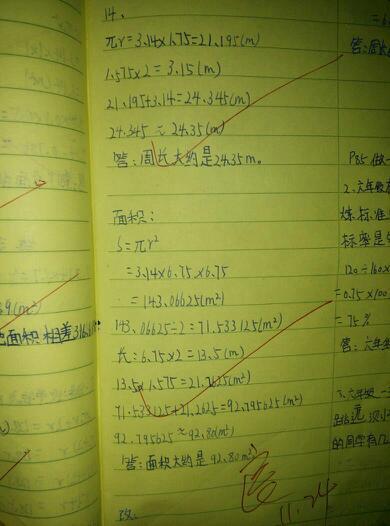 14、
πr=3.14×6.75=21.195(m)
1.575×2=3.15(m)
21.195+3.14=24.345(m)
24.345≈24.35(m)
答:周长大约是24.35m。
面积:
S=πr²
=3.14×6.75×6.75
=143.06625(m²)
143.06625÷2=71.533125(m²)
长:6.75×2=13.5(m)
13.5×1.575=21.2625(m²)
71.533125+21.2625=92.795625(m²)
92.795625≈92.80(m²)
答:面积大约是92.80m²
改.
11.24
9(m²)
面积相差316.
答:周长
P85 做一
2、六年级
炼标准
标率是
120÷160×
=0.75×100
=75%
答:六年级
3、六年级一
的同学有几